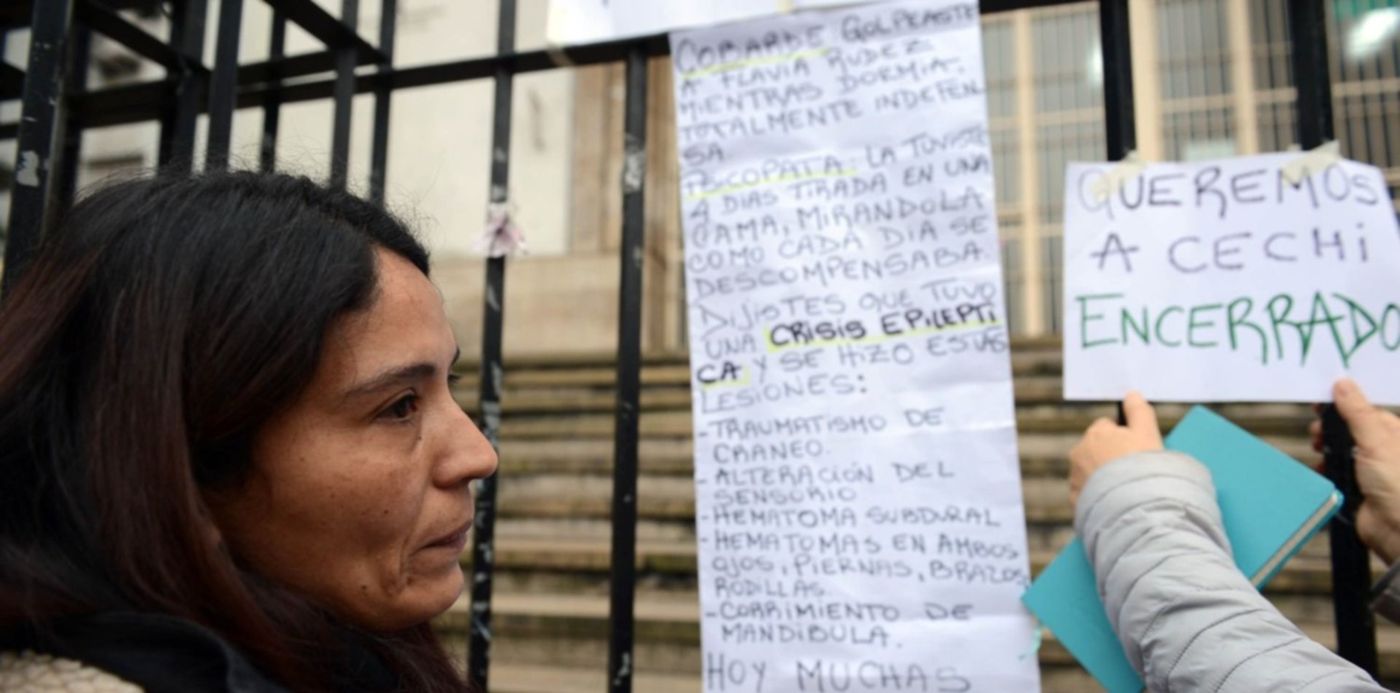 COBARDE GOLPEASTE
A FLAVIA RUDEZ
MIENTRAS DORMIA.
TOTALMENTE INDEFEN
SA
PSICOPATA. LA TUVISTE
4 DIAS TIRADA EN UNA
CAMA, MIRANDOLA
COMO CADA DIA SE
DESCOMPENSABA.
DIJISTES QUE TUVO
UNA CRISIS EPILEPTI
CA Y SE HIZO ESTAS
LESIONES:
-TRAUMATISMO DE
CRANEO.
-ALTERACIÓN DEL
SENSORIO
-HEMATOMA SUBDURAL
-HEMATOMAS EN AMBOS
OJOS, PIERNAS, BRAZOS
RODILLAS.
-CORRIMIENTO DE
MANDIBULA.
HOY MUCHAS
QUEREMOS
A CECHi
ENCERRADO